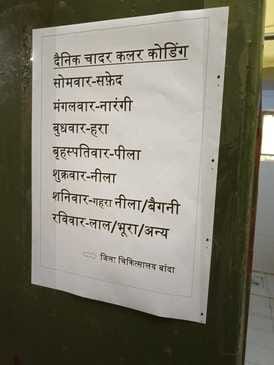 दैनिक चादर कलर कोडिंग
सोमवार-सफ़ेद
मंगलवार-नारंगी
बुधवार-हरा
बृहस्पतिवार-पीला
शुक्रवार-नीला
शनिवार-गहरा नीला/बैगनी
रविवार-लाल/भूरा/अन्य
जिला चिकित्सालय बांदा